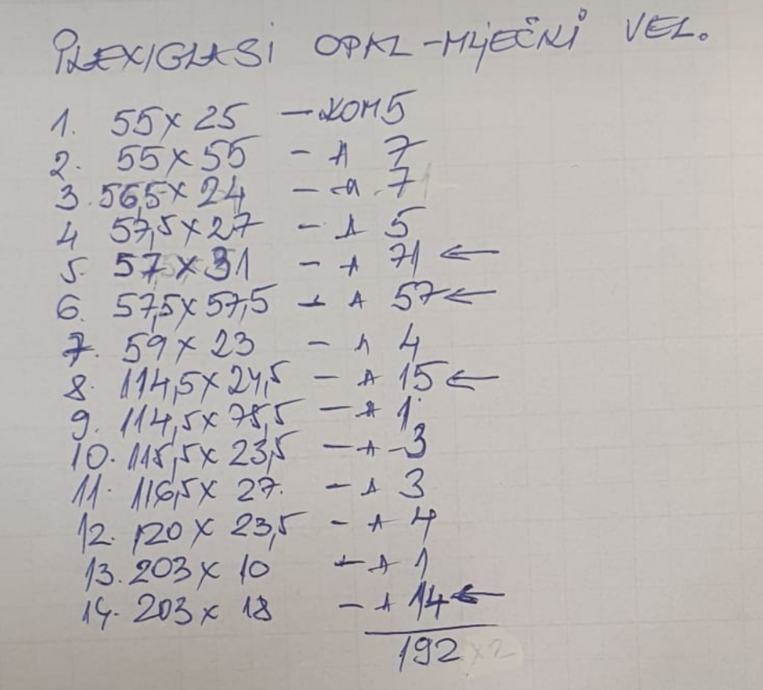 PLEXIGLASI OPAL-MLJEČNI VEL.
1. 55 x 25 - KOM 5
2. 55 x 55 - 7
3. 56,5 x 24 - 7
4 57,5 x 27 - 5
5. 57 x 31 - 71 ←
6. 57,5 x 57,5 - 57 ←
7. 59 x 23 - 4
8. 114,5 x 24,5 - 15 ←
9. 114,5 x 75,5 - 1
10. 115,5 x 23,5 - 3
11. 116,5 x 27. - 3
12. 120 x 23,5 - 4
13. 203 x 10 - 1
14. 203 x 18 - 14 ←
192 x2